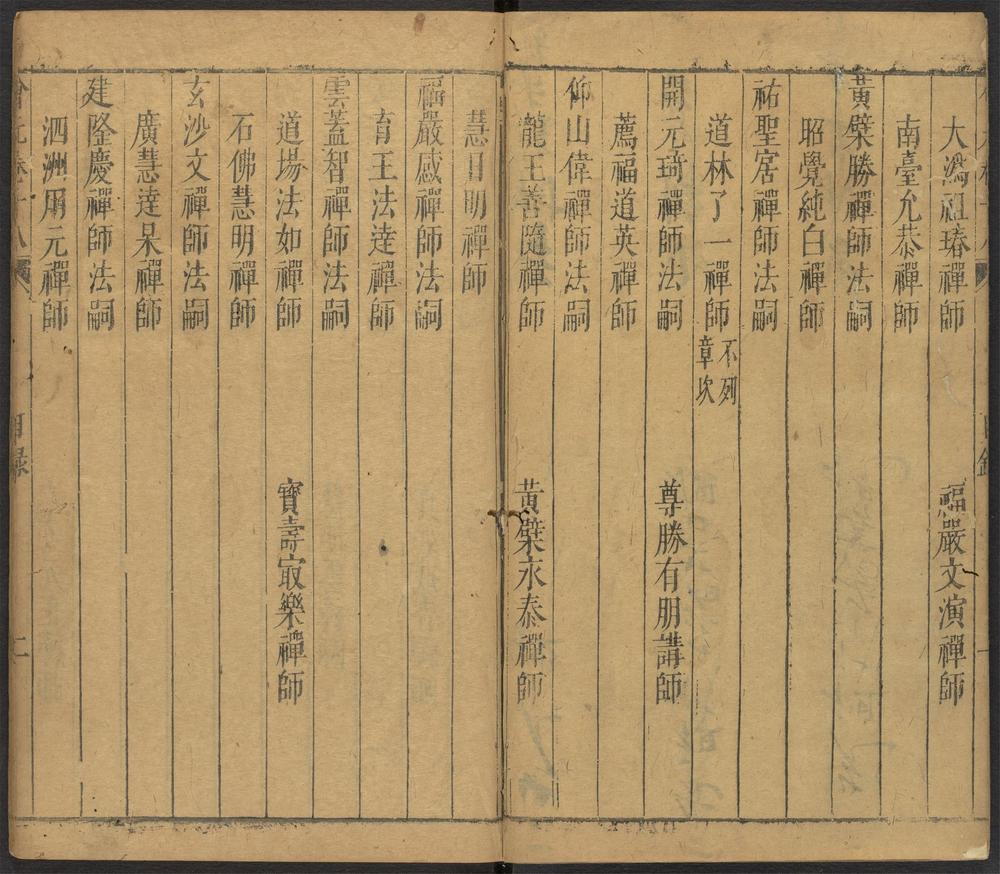 大溈祖瑃禪師 福嚴文演禪師
南臺允恭禪師
黃檗勝禪師法嗣
昭覺純白禪師
祐聖㝛禪師法嗣
道林了一禪師不列章次
開元琦禪師法嗣 尊勝有朋講師
薦福道英禪師
仰山偉禪師法嗣
龍王善隨禪師 黃檗永泰禪師
慧日明禪師
福嚴感禪師法嗣
育王法達禪師
雲蓋智禪師法嗣
道場法如禪師 寶壽㝡樂禪師
石佛慧明禪師
玄沙文禪師法嗣
廣慧達杲禪師
建隆慶禪師法嗣
泗洲用元禪師
會元卷十八 目錄 二